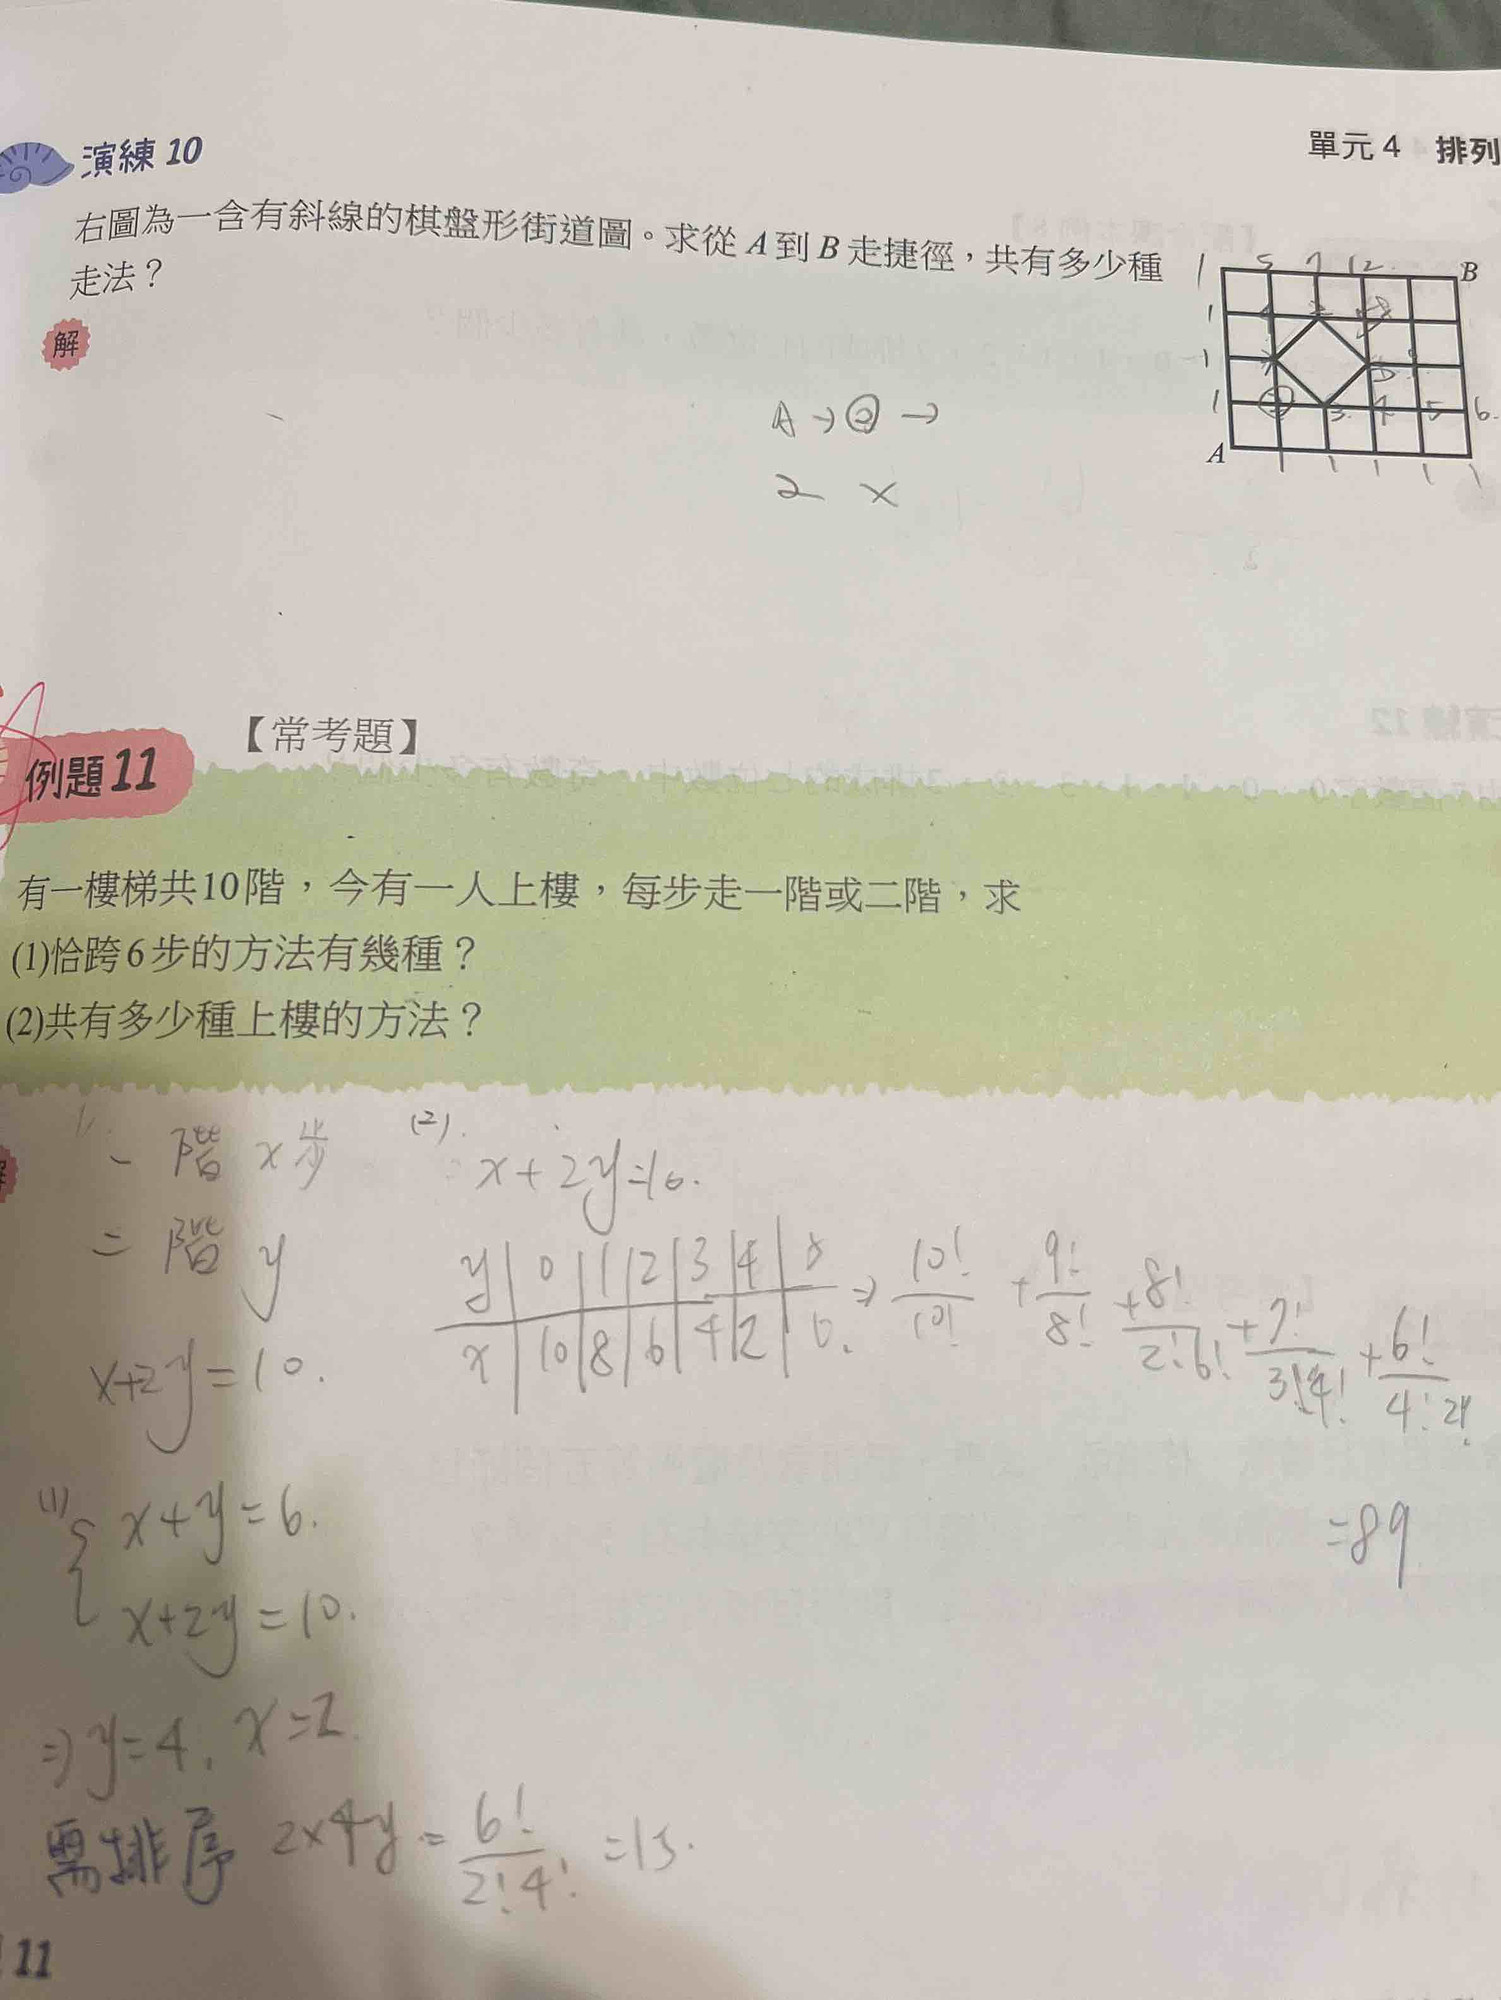 演練 10
單元 4 排列
右圖為一含有斜線的棋盤形街道圖。求從 A 到 B 走捷徑,共有多少種
走法?
解
1 5 7 12 B
1
1
1 3. 4 5 6.
A 1 1 1 1 1
A→②→
2 ×
【常考題】
例題 11
有一樓梯共10階,今有一人上樓,每步走一階或二階,求
(1)恰跨6步的方法有幾種?
(2)共有多少種上樓的方法?
一階 x步
二階 y
x+2y=10.
(1) { x+y=6.
x+2y=10.
⇒y=4, x=2.
需排序 2x4y = 6!/2!4! =15.
(2).
x+2y=10.
y 0 1 2 3 4 5
x 10 8 6 4 2 0.
⇒ 10!/10! + 9!/8! + 8!/2!6! + 7!/3!4! + 6!/4!2!
=89
11